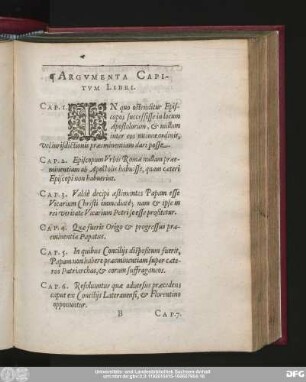 ¶ ARGVMENTA CAPI-
TVM LIBRI.
CAP. 1. IN quo ostenditur Epis-
copos successisse in locum
Apostolorum, & nullam
inter eos
vel iurisdictionis praeminentiam dari posse.
CAP. 2. Episcopum Vrbis Romæ nullam præ-
minentiam ab Apostolis habuisse, quam cæteri
Episcopi non habuerint.
CAP. 3. Valdè decipi æstimantes Papam esse
Vicarium Christi immediatè, nam & ipse in
rei veritate Vicarium Petri se esse profitetur.
CAP. 4. Quæ fuerit Origo & progressus præ-
eminentiæ Papatus.
CAP. 5. In quibus Concilijs dispositum fuerit,
Papam non habere præeminentiam super cæte-
ros Patriarchas, & eorum suffraganeos.
CAP. 6. Resoluuntur quæ aduersus præcedens
caput ex Concilijs Lateranensi, & Florentino
opponuntur.
B CAP. 7.
Universitäts- und Landesbibliothek Sachsen-Anhalt
DFG